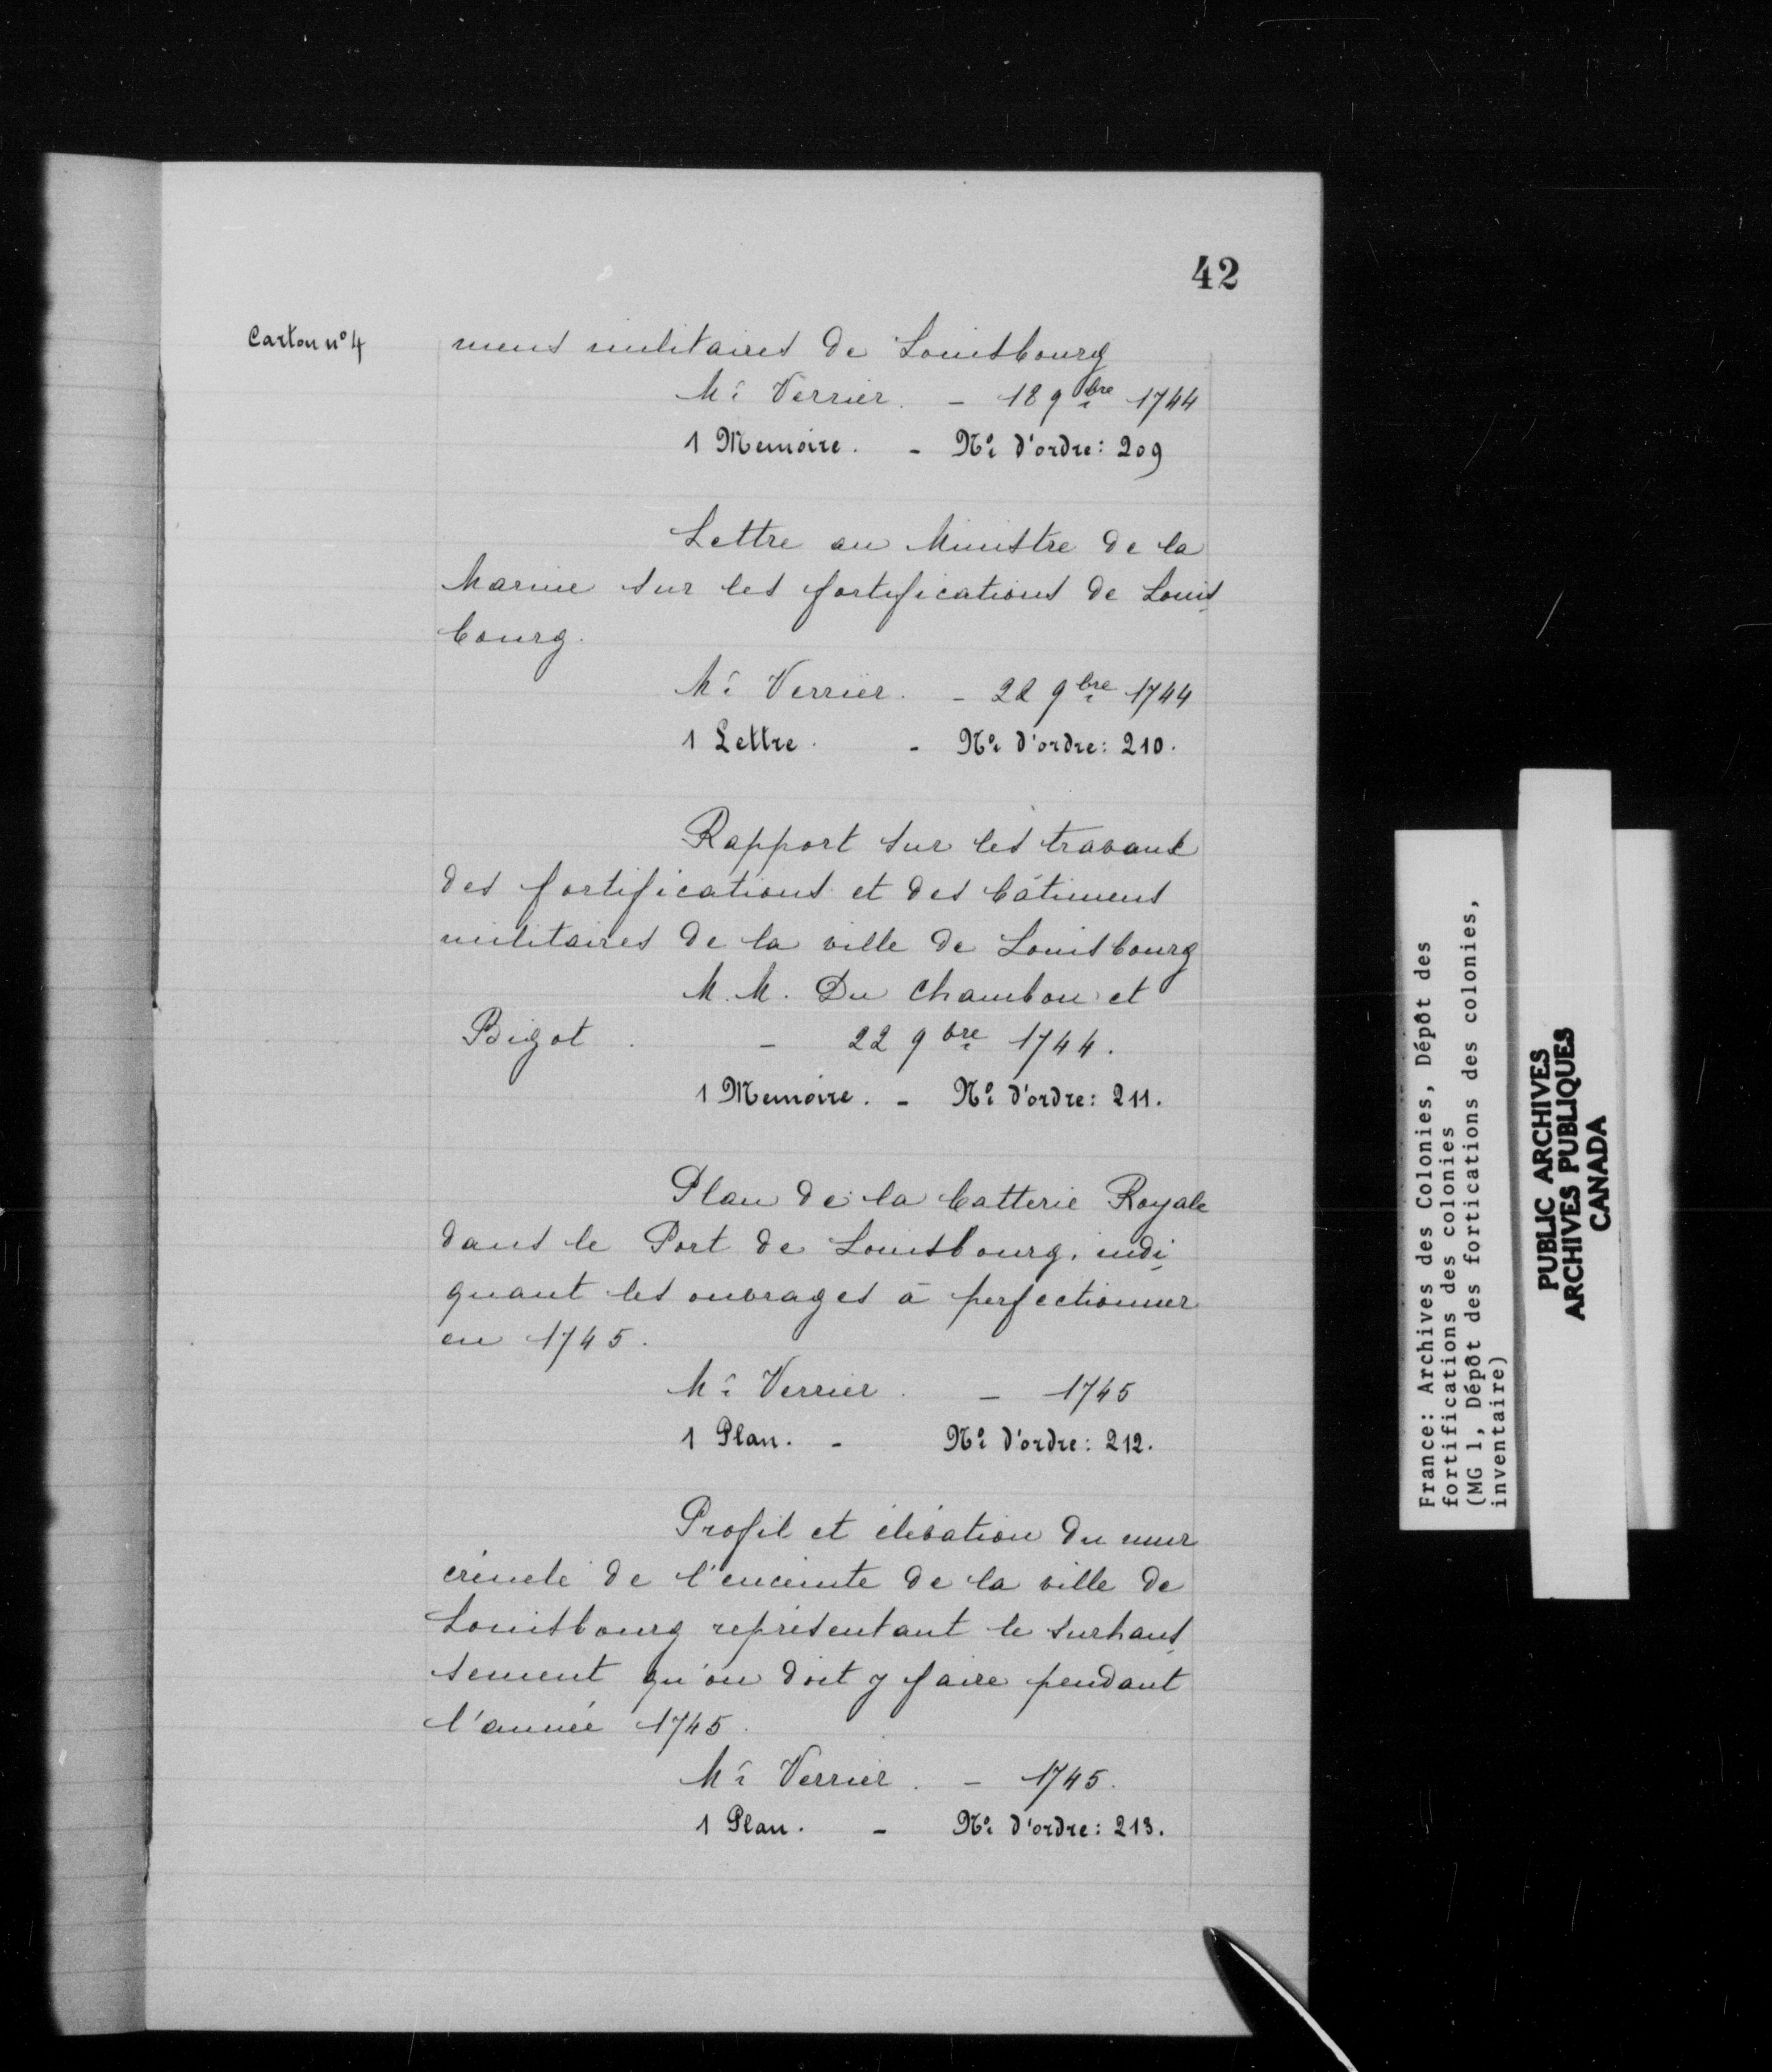 42
Carton nº 4
mens militaires de Louisbourg
Mr Verrier. - 18 9bre 1744
1 Memoire. - Nº d'ordre: 209
Lettre au Ministre de la
Marine sur les fortifications de Louis
bourg.
Mr Verrier. - 22 9bre 1744
1 Lettre. - Nº d'ordre: 210.
Rapport sur les travaux
des fortifications et des bâtimens
militaires de la ville de Louisbourg
M.M. Du Chambon et
Bigot. - 22 9bre 1744.
1 Memoire. - Nº d'ordre: 211.
Plan de la batterie Royale
dans le Port de Louisbourg, indi
quant les ouvrages à perfectionner
en 1745.
Mr Verrier. - 1745
1 Plan. - Nº d'ordre: 212.
Profil et élévation du mur
crénelé de l'enceinte de la ville de
Louisbourg représentant le surhaus
sement qu'on doit y faire pendant
l'année 1745.
Mr Verrier. - 1745.
1 Plan. - Nº d'ordre: 213.
France: Archives des Colonies, Dépôt des
fortifications des colonies
(MG 1, Dépôt des fortications des colonies,
inventaire)
PUBLIC ARCHIVES
ARCHIVES PUBLIQUES
CANADA